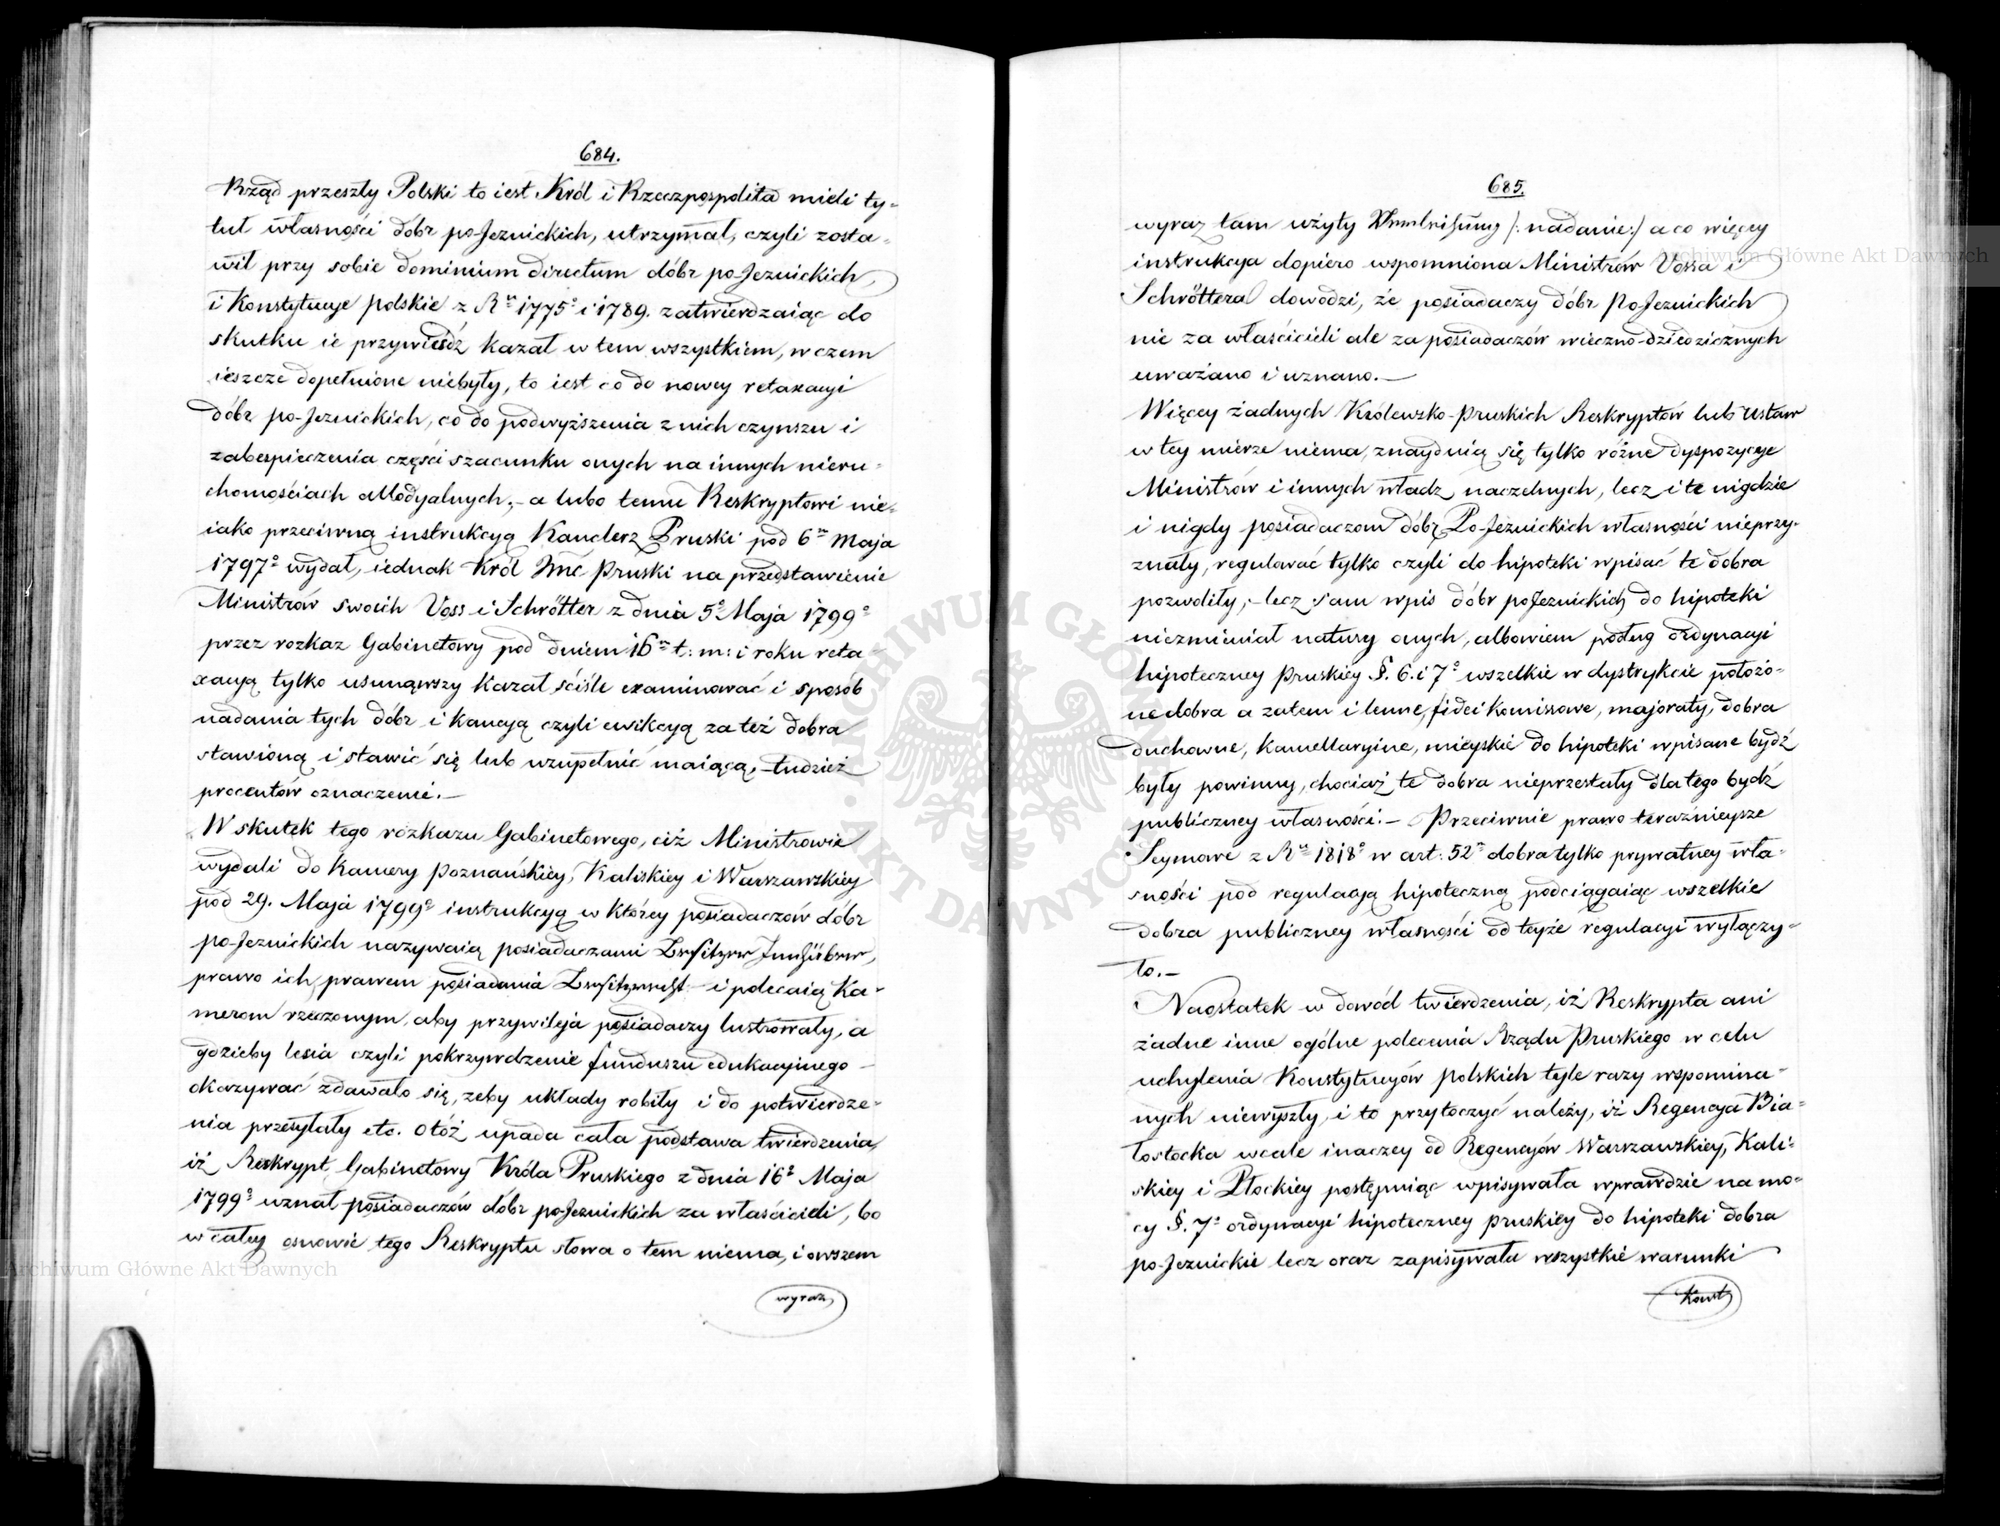 684.
Rząd przeszły Polski to iest Król i Rzeczpospolita mieli ty=
tuł własności dóbr po-Jezuickich, utrzymał, czyli zosta=
wił przy sobie dominium directum dóbr po-Jezuickich,
i Konstytucye polskie z Ru 1775º i 1789. zatwierdzaiąc do
skutku ie przywieśdź kazał w tem wszystkiem, w czem
ieszcze dopełnione niebyły, to iest co do nowey retaxacyi
dóbr po-Jezuickich, co do podwyższenia z nich czynszu i
zabespieczenia części szacunku onych na innych nieru=
chomościach allodyalnych,- a lubo temu Reskryptowi nie=
iako przeciwną instrukcyą Kanclerz Pruski pod 6m Maja
1797º wydał, iednak Król Jmć pruski na przedstawienie
Ministrów swoich Voss i Schrötter z dnia 5º Maja 1799º
przez rozkaz Gabinetowy pod dniem 16m t: m: i roku reta=
xacyą tylko usunąwszy kazał ściśle examinować i sposób
nadania tych dóbr i kaucyą czyli ewikcyą za też dobra
stawioną i stawić się lub uzupełnić maiącą,- tudzież
procentów oznaczenie.-
W skutek tego rozkazu Gabinetowego, ciż Ministrowie
wydali do Kamery Poznańskiey, Kaliskiey i Warszawskiey
pod 29. Maja 1799º instrukcyą w którey posiadaczów dóbr
po-Jezuickich nazywaią posiadaczami Besitzer Innhaber,
prawo ich prawem posiadania Besitzrecht - i polecaią Ka=
merom rzeczonym, aby przywileja posiadaczy lustrowały, a
gdzieby lesia czyli pokrzywdzenie funduszu edukacyinego -
okazywać zdawało się, żeby układy robiły i do potwierdze=
nia przesyłały etc. Otóż upada cała podstawa twierdzenia,
iż Reskrypt Gabinetowy Króla Pruskiego z dnia 16º Maja
1799º uznał posiadaczów dóbr po-Jezuickich za właścicieli, bo
w całey osnowie tego Reskryptu słowa o tem niema, i owszem
wyraz
685.
wyraz tam użyty /: nadanie:/ a co więcey
instrukcya dopiero wspomniona Ministrów Vossa i
Schröttera dowodzi, że posiadaczy dóbr Po-Jezuickich
nie za właścicieli ale za posiadaczów wieczno-dziedzicznych
uważano i uznano.-
Więcey żadnych Królewsko-Pruskich Reskryptów lub Ustaw
w tey mierze niema, znayduią się tylko różne dyspozycye
Ministrów i innych władz naczelnych, lecz i te nigdzie
i nigdy posiadaczom dóbr Po-Jezuickich własności nieprzy=
znały, regulować tylko czyli do hipoteki wpisać te dobra
pozwoliły,- lecz sam wpis dóbr poJezuickich do hipoteki
niezmieniał natury onych, albowiem podług ordynacyi
hipoteczney Pruskiey §. 6. i 7º wszelkie w dystrykcie położo=
ne dobra a zatem i lenne, fideikomissowe, majoraty, dobra
duchowne, kamellaryine, mieyskie do hipoteki wpisane bydź
były powinny, chociaż te dobra nieprzestały dlatego bydź
publiczney własności.- Przeciwnie prawo terazniejsze
Seymowe z Ru 1818º w art. 52m dobra tylko prywatney wła=
sności pod regulacyą hipoteczną podciągaiąc wszelkie
dobra publiczney własności od teyże regulacyi wyłączy=
ło.-
Naostatek w dowód twierdzenia, iż Reskrypta ani
żadne inne ogólne polecenia Rządu Pruskiego w celu
uchylenia Konstytucyów polskich tyle razy wspomina=
nych niewyszły, i to przytoczyć należy, iż Regencya Bia=
łostocka wcale inaczey od Regencyów Warszawskiey, Kali=
skiey i Płockiey postępuiąc wpisywała wprawdzie na mo=
cy §. 7º ordynacyi hipoteczney pruskiey do hipoteki dobra
po-Jezuickie lecz oraz zapisywała wszystkie warunki
Konst
ARCHIWUM GŁÓWNE AKT DAWNYCH
Archiwum Główne Akt Dawnych
Archiwum Główne Akt Dawnych